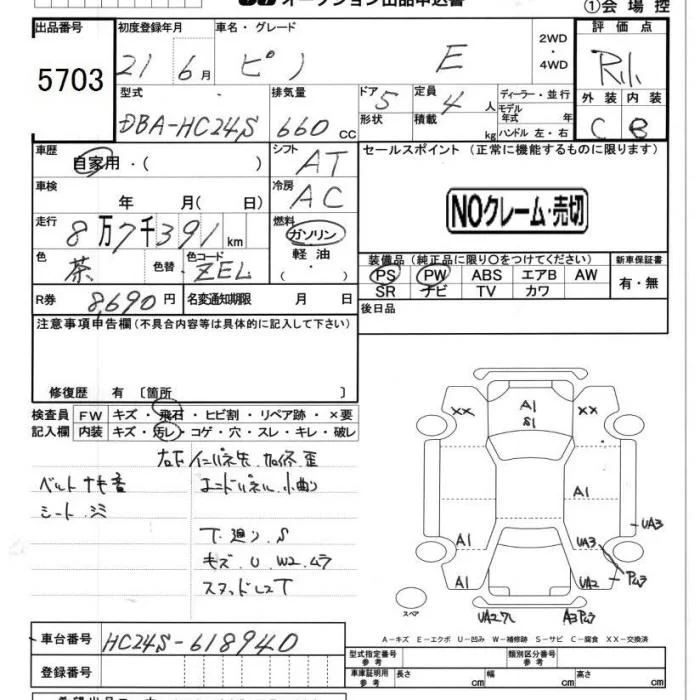 オークション出品申込書
①会場控
出品番号 5703
初度登録年月 21 6月
車名・グレード ピノ E
2WD・4WD
評価点
外装 C 内装 B
型式 DBA-HC24S
排気量 660 cc
ドア 5
形状
定員 4 人
積載 kg
ディーラー・並行
モデル年式 年
ハンドル 左・右
車歴 自家用・( )
シフト AT
車検 年 月( 日)
冷房 AC
走行 8万7千391 km
燃料 ガソリン 軽油・( )
色 茶 色替 色コード ZEL
R券 8,690円 名変通知期限 月 日
セールスポイント(正常に機能するものに限ります)
NOクレーム・売切
装備品(純正品に限り○をつけてください) 新車保証書
PS PW ABS エアB AW 有・無
SR ナビ TV カワ
後日品
注意事項申告欄(不具合内容等は具体的に記入して下さい)
修復歴 有 〔箇所 〕
検査員 FW キズ・飛石・ヒビ割・リペア跡・×要
記入欄 内装 キズ・汚レ・コゲ・穴・スレ・キレ・破レ
ベルト
シート
キズ U W2 ムラ
XX A1 XX
S1
A1
UA3
A1 UA3
A1 UA2
UA2 A3
スペア
A-キズ E-エクボ U-凹み W-補修跡 S-サビ C-腐食 XX-交換済
車台番号 HC24S-618940
登録番号
型式指定番号 参考 類別区分番号 参考
車庫証明用 参考 長さ cm 幅 cm 高さ cm